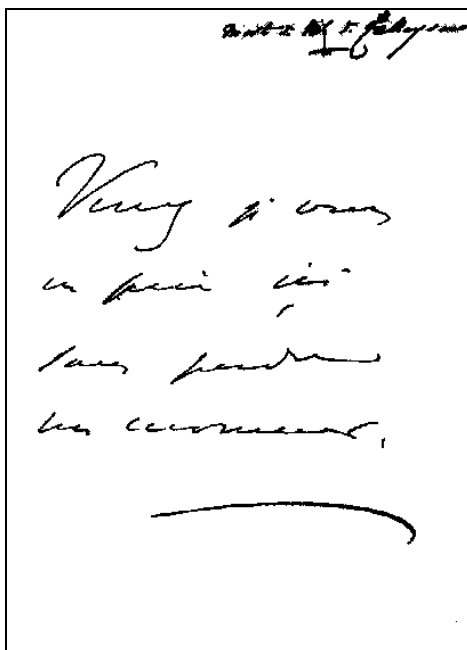 Venez je vous
en prie ici
sans perdre
un moment.